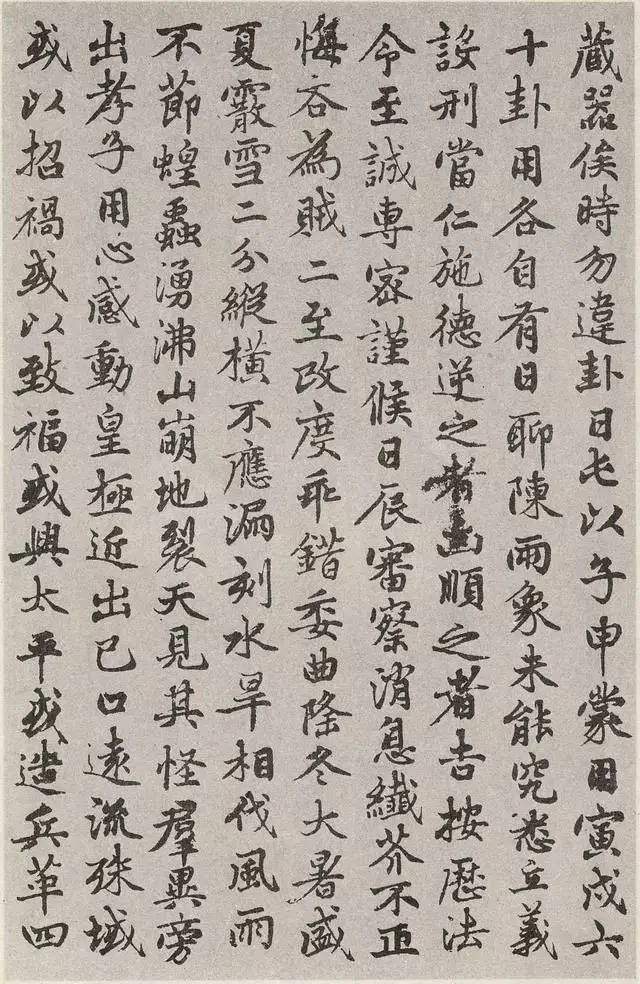 藏器俟時勿違卦日屯以子申蒙用寅戍六
十卦用各自有日聊陳兩象未能究悉立義
設刑當仁施德逆之者凶順之者吉按曆法
令至誠專密謹候日辰審察消息纖芥不正
悔吝為賊二至改度乖錯委曲隆冬大暑盛
夏霰雪二分縱横不應漏刻水旱相伐風雨
不節蝗蟲湧沸山崩地裂天見其怪羣異旁
出孝子用心感動皇極近出己口遠流殊域
或以招禍或以致福或興太平或造兵革四